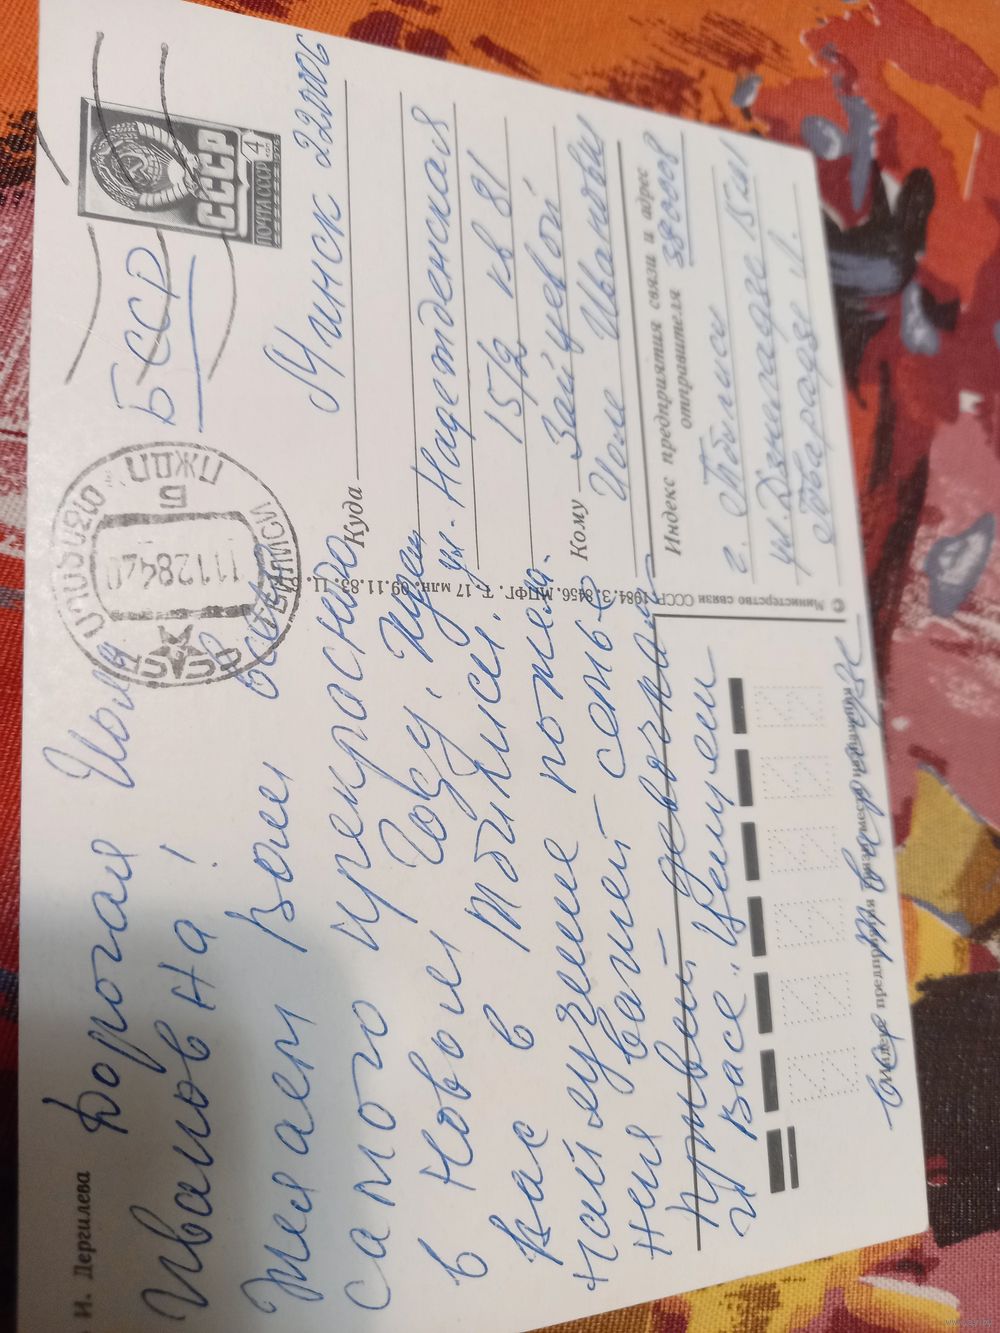 И. Дергилева
Дорогая Июля
Ивановна!
Желаем Вам всего
самого прекрасного
в Новом Году. Ждем
Вас в Тбилиси.
Наилучшие пожела-
ния вашей семье
Привет девочкам
и Васе. Целуем
все Твараадзе
БССР
СССР
4
ПОЧТА СССР
СССР
ТБИЛИСИ
ПЖДП
111284
Куда Минск 220006
ул. Надеждинская
15/2 кв 81
Кому Зайцевой
Июле Ивановны
Индекс предприятия связи и адрес
отправителя 380008
г. Тбилиси
ул. Дзнеладзе 15
© Министерство связи СССР, 1984. З. 8456. МПФГ. Т. 17 млн. 09.11.83. Ц.
Индекс предприятия связи места назначения